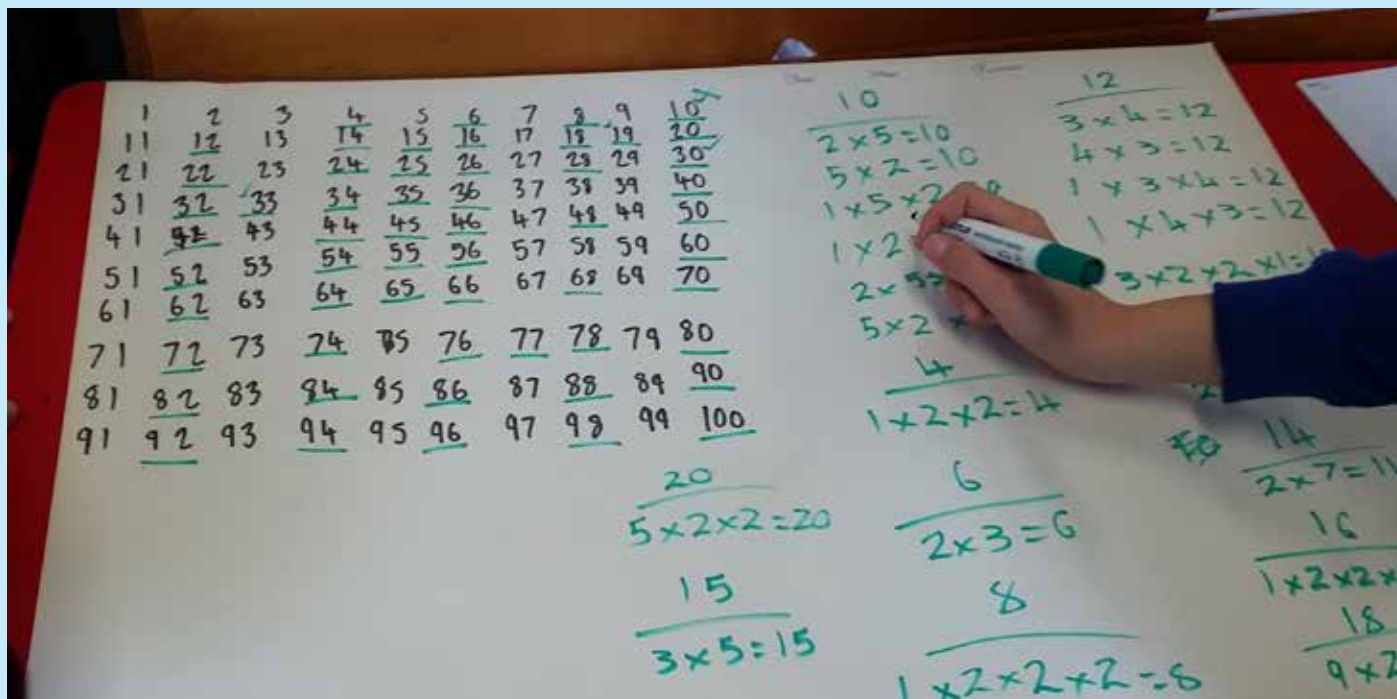 1 2 3 4 5 6 7 8 9 10
11 12 13 14 15 16 17 18 19 20
21 22 23 24 25 26 27 28 29 30
31 32 33 34 35 36 37 38 39 40
41 42 43 44 45 46 47 48 49 50
51 52 53 54 55 56 57 58 59 60
61 62 63 64 65 66 67 68 69 70
71 72 73 74 75 76 77 78 79 80
81 82 83 84 85 86 87 88 89 90
91 92 93 94 95 96 97 98 99 100
10
2×5=10
5×2=10
1×5×2
1×2
2×5
5×2
4
1×2×2=4
12
3×4=12
4×3=12
1×3×4=12
1×4×3=12
3×2×2×1=
2
20
5×2×2=20
15
3×5=15
6
2×3=6
8
1×2×2×2=8
14
2×7=
16
1×2×2×
18
9×2